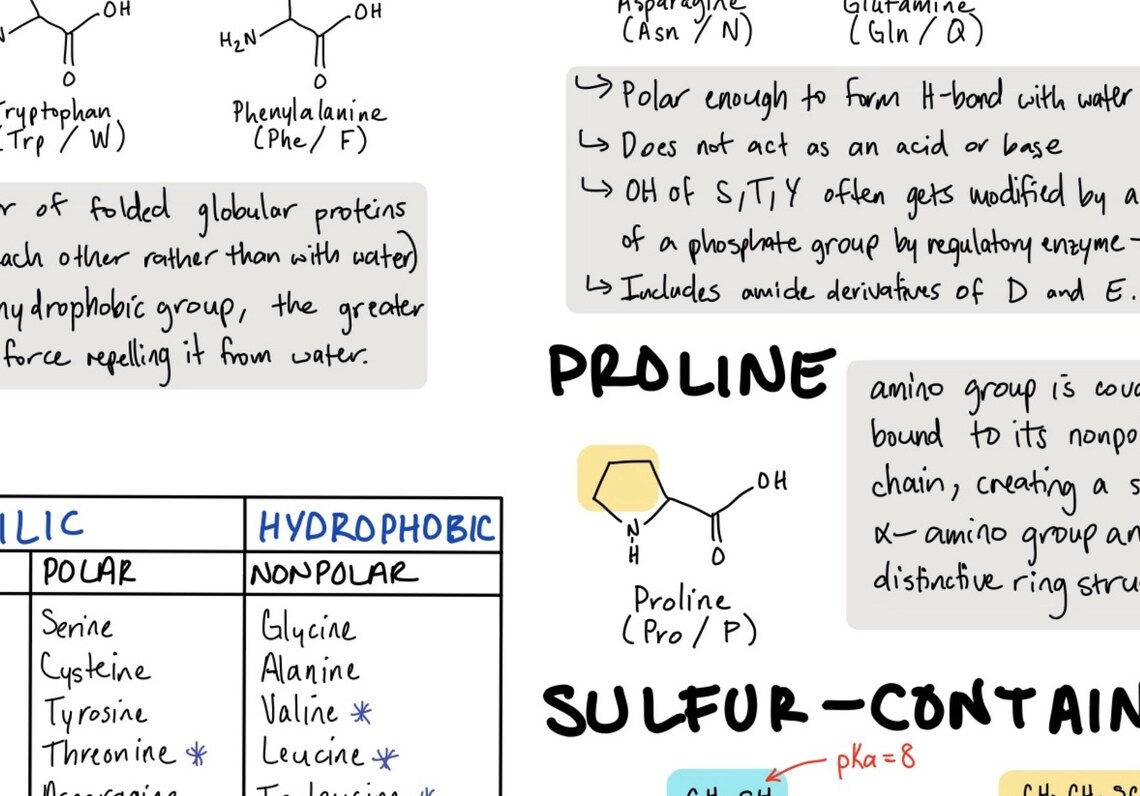 OH
O
Tryptophan
(Trp / W)
H₂N
OH
O
Phenylalanine
(Phe / F)
of folded globular proteins
other rather than with water)
hydrophobic group, the greater
force repelling it from water.
HYDROPHOBIC
POLAR
NONPOLAR
Serine
Glycine
Cysteine
Alanine
Tyrosine
Valine *
Threonine *
Leucine *
Asparagine
Isoleucine *
Asparagine
(Asn / N)
Glutamine
(Gln / Q)
↳ Polar enough to form H-bond with water
↳ Does not act as an acid or base
↳ OH of S,T,Y often gets modified by a
of a phosphate group by regulatory enzyme -
↳ Includes amide derivatives of D and E.
PROLINE
OH
O
N
H
Proline
(Pro / P)
amino group is
bound to its
chain, creating a
α-amino group
distinctive ring
SULFUR-
pKa=8